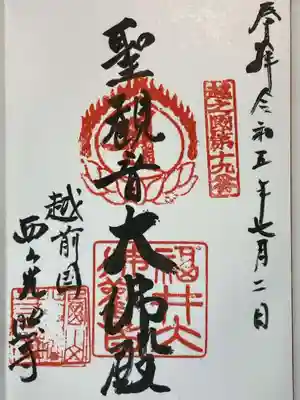 奉拝 令和五年七月二日
越之國第十九番
聖観音大佛殿
越前国
西山光照寺
福井大